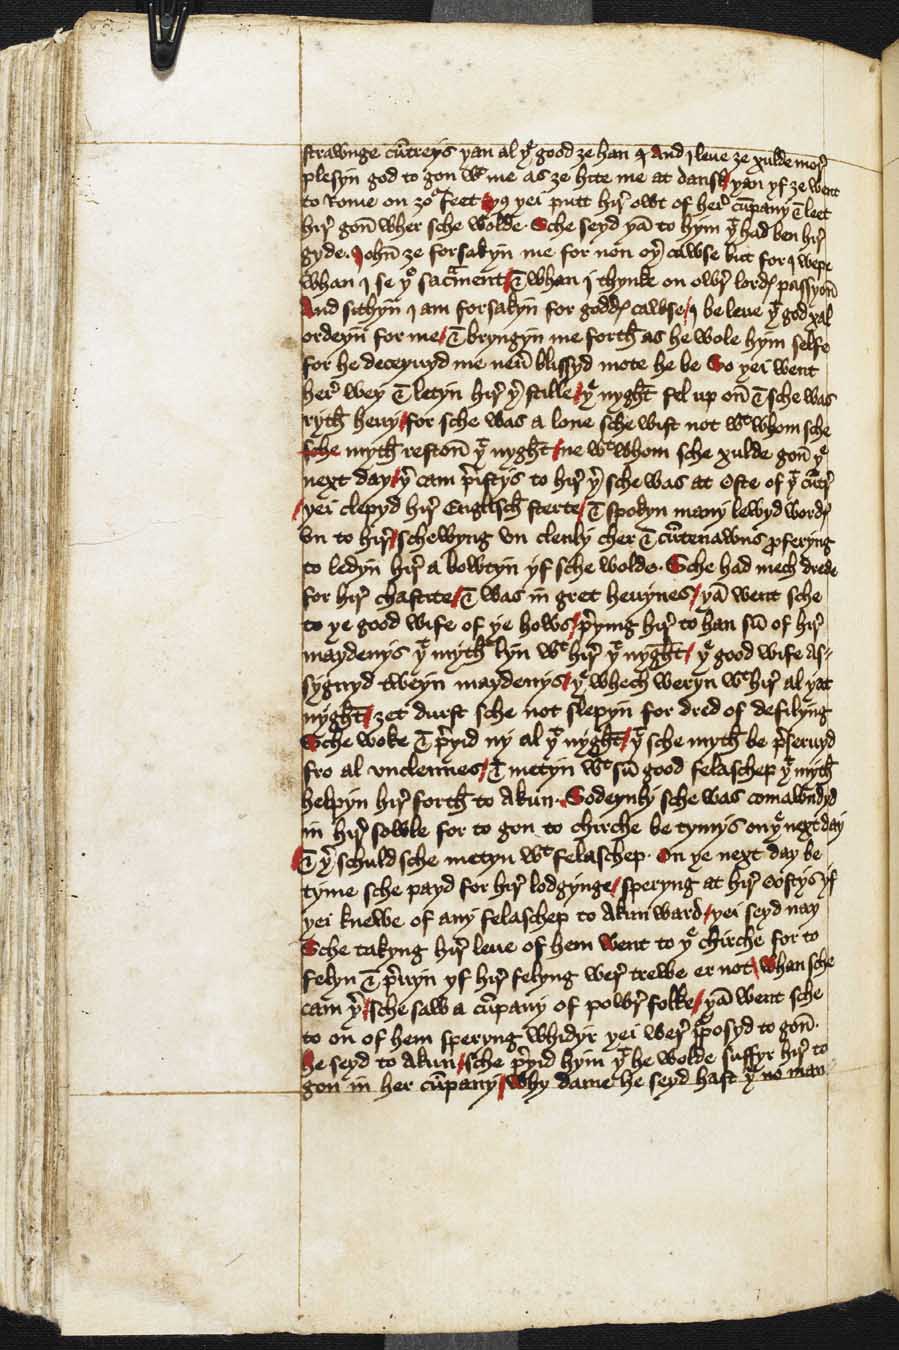 strawnge cūtreys yan al yͤ good ȝe han ⁊ And I leue ȝe xulde mor
plesyn god to gon wͭ me as ȝe hite me at dansk / yan yf ȝe went
to Rome on ȝoͬ feet / yus yei putt hir owt of her cūpany & leet
hir gon wher sche wolde. Sche seyd yā to hym yͭ had ben hir
gyde. John ȝe forsakyn me for non oyr cawse but for I wepe
whan I se yͤ sacrament / & whan I thynke on owr lordys passyon
And sithyn I am forsakyn for goddys cawse / I beleue yͭ god xal
ordeyn for me / & bryngyn me forth as he wole hym selfe
for he deceyuyd me neuer blissyd mote he be So yei went
her wey & letyn hir yer stille / yͤ nyght fel up on & sche was
ryth heuy / for sche was a lone sche wist not wͭ whom sche
sche myth reston yͭ nyght / ne wͭ whom sche xulde gon yͤ
next day / yer cam pristys to hir yer sche was at oste of yͭ cūtre
/ yei clepyd hir Englisch sterte / & spokyn many lewyd wordys
vn to hir / schewyng vn clenly cher & cūtenawns proferyng
to ledyn hir a bowtyn yf sche wolde. Sche had mech drede
for hir chastite / & was in gret heuynes / yā went sche
to ye good wife of ye hows / preying hir to han sū of hir
maydenys yͭ myth lyn wͭ hir yͭ nyght / yͤ good wife as-
sygnyd tweyn maydenys / yͤ whech weryn wͭ hir al yat
nyght / ȝet durst sche not slepyn for dred of defilyng
Sche woke & preyid ny al yͭ nyght / yͭ sche myth be preseruyd
fro al vnclennes / & metyn wͭ sū good felaschep yͭ myth
helpyn hir forth to Akun. Sodeynly sche was comawndyd
in hir sowle for to gon to chirche be tymys on yͤ next day
/ & yer schuld sche metyn wͭ felaschep. On ye next day be
tyme sche payd for hir lodgynge / speryng at hir oostys yf
yei knewe of any felaschep to Akunward / yei seyd nay
Sche takyng hir leue of hem went to yͤ chirche for to
felyn & preuyn yf hir felyng wer trewe er not / Whan sche
cam yer / sche saw a cūpany of powr folke / yā went sche
to on of hem speryng whidyr yei wer purposyd to gon.
he seyd to Akun / sche preyid hym yͭ he wolde suffyr hir to
gon in her cūpany / Why dame he seyd hast yͧ no man